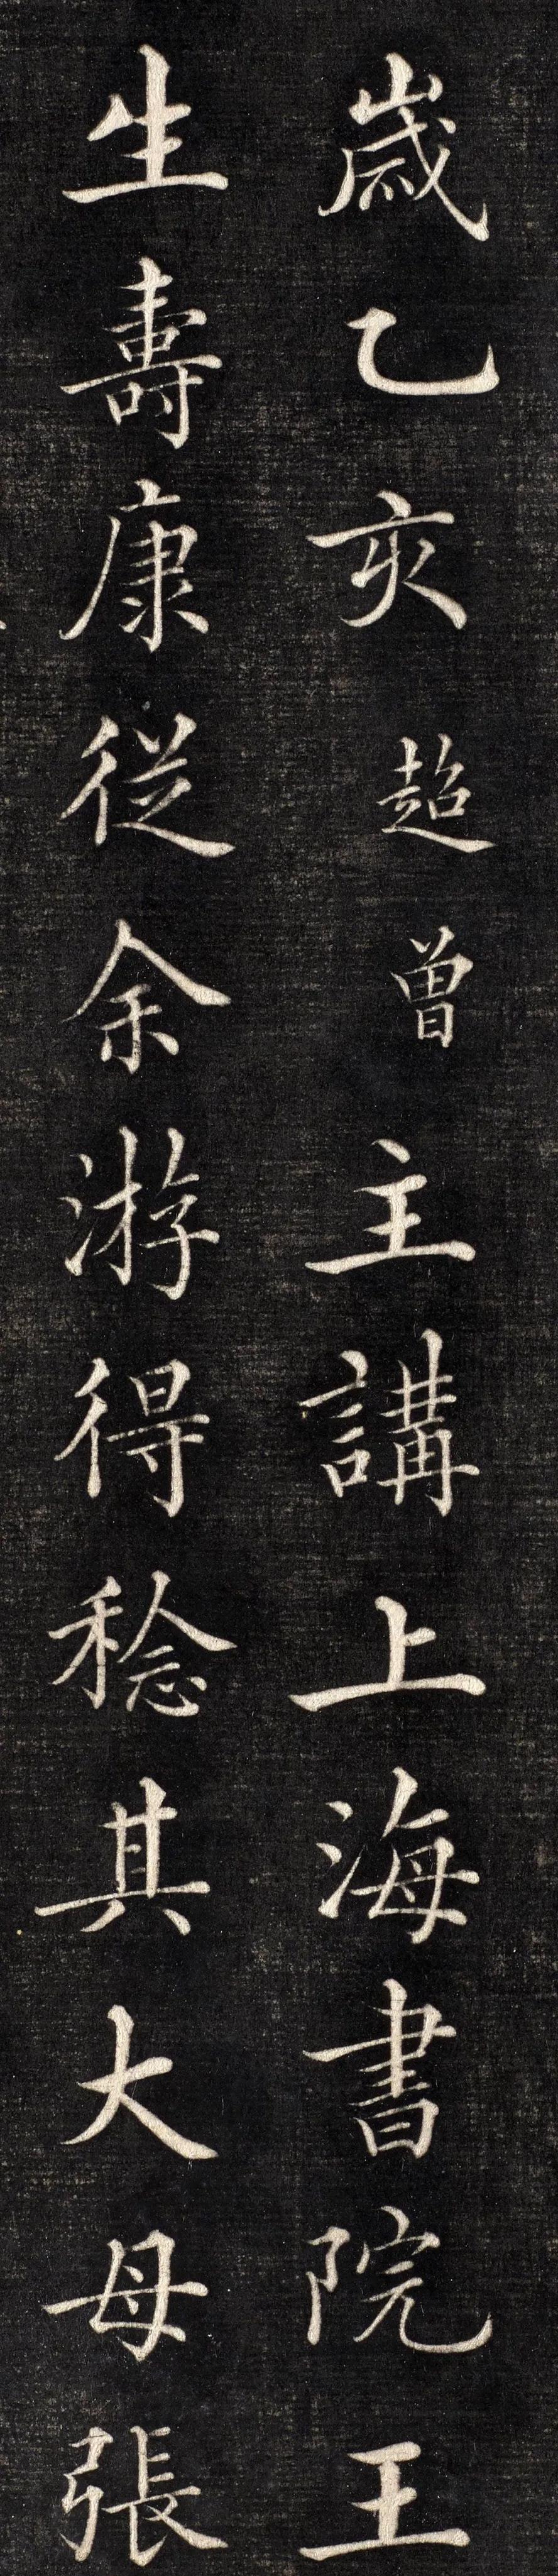 歲乙亥超曾主講上海書院王
生壽康從余游得稔其大母張